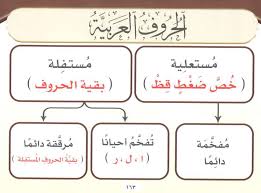 الحروف العربية
مُستعلِية
( خُصَّ ضَغْطٍ قِظْ )
مُستفِلة
( بقية الحروف )
مُفخَّمة
دائمًا
تُفخَّم أحيانًا
( ا ، ل ، ر )
مُرققة دائمًا
( بقيَّة الحروف المستفلة )
١٦٣